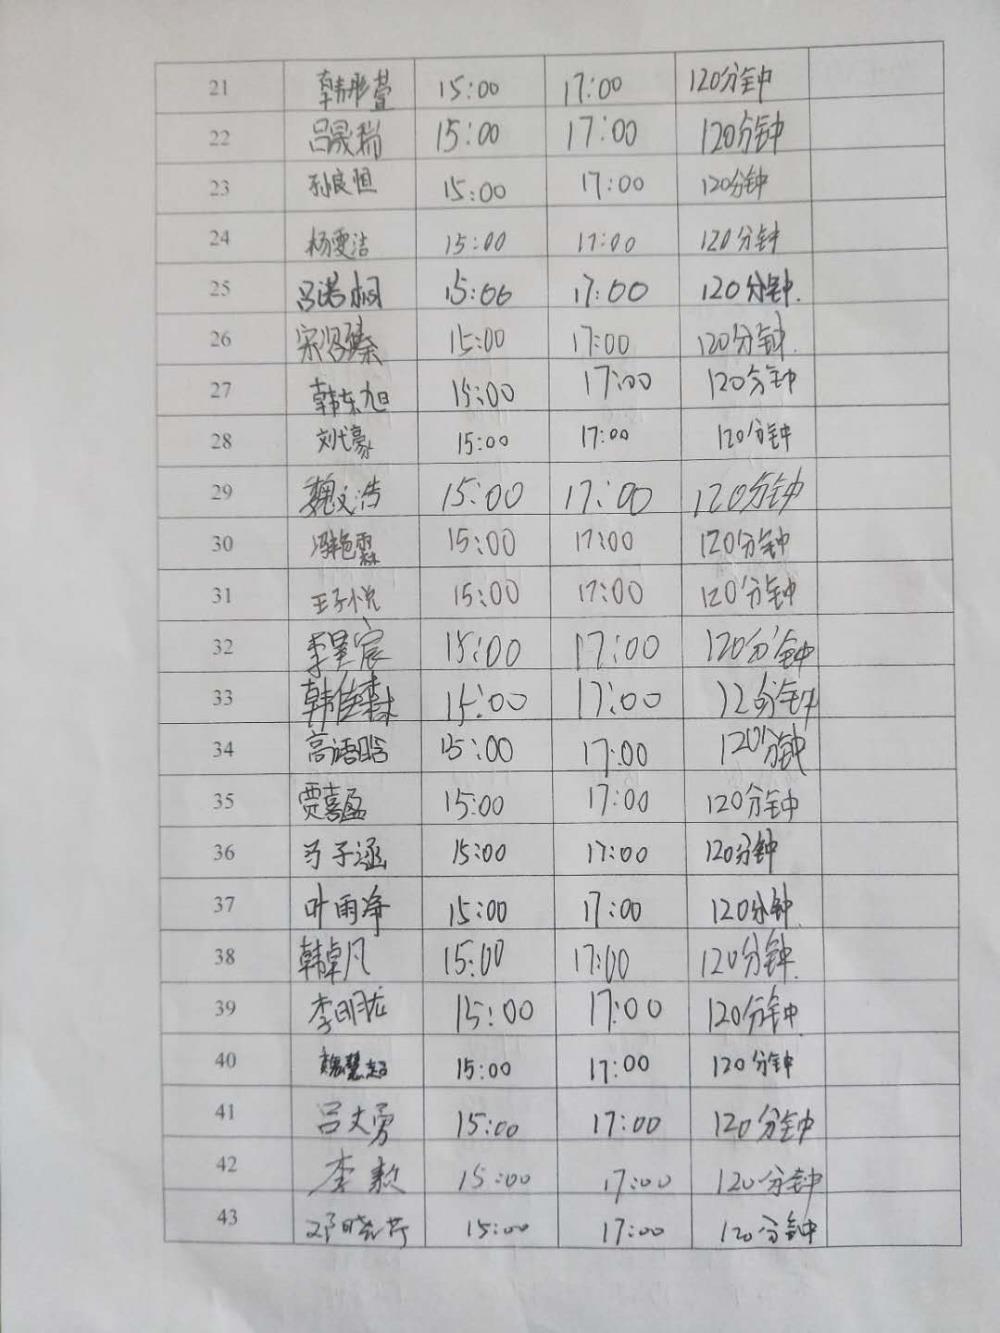 21 韩彤萱 15:00 17:00 120分钟
22 吕晟瑞 15:00 17:00 120分钟
23 孙良恒 15:00 17:00 120分钟
24 杨雯洁 15:00 17:00 120分钟
25 吕诺桐 15:00 17:00 120分钟.
26 15:00 17:00 120分钟.
27 韩东旭 15:00 17:00 120分钟
28 刘代豪 15:00 17:00 120分钟
29 魏文浩 15:00 17:00 120分钟
30 冯艳霖 15:00 17:00 120分钟
31 王子悦 15:00 17:00 120分钟
32 李星宸 15:00 17:00 120分钟
33 韩佳霖 15:00 17:00 12分钟
34 高语晗 15:00 17:00 120分钟
35 贾喜盈 15:00 17:00 120分钟
36 马子涵 15:00 17:00 120分钟
37 叶雨净 15:00 17:00 120分钟.
38 韩卓凡 15:00 17:00 120分钟.
39 李明龙 15:00 17:00 120分钟.
40 魏慧超 15:00 17:00 120分钟
41 吕文勇 15:00 17:00 120分钟
42 李毅 15:00 17:00 120分钟
43 邓晓芹 15:00 17:00 120分钟